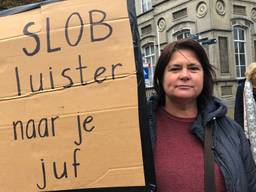 SLOB
luister
naar je
juf